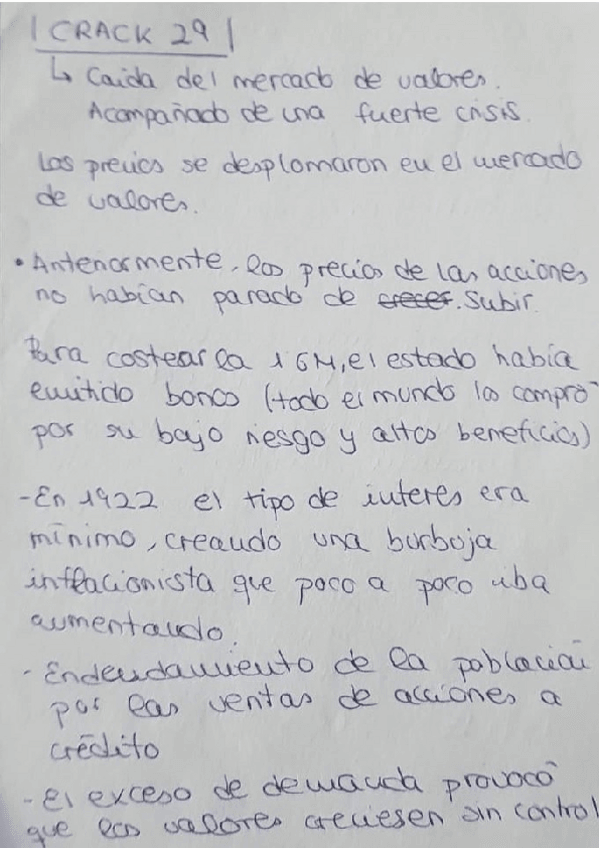 CRACK 29
↳ Caida del mercado de valores.
Acompañado de una fuerte crisis.
Los precios se desplomaron en el mercado
de valores.
• Anteriormente, los precios de las acciones
no habían parado de crecer. Subir.
Para costear la 1 GM, el estado había
emitido bonos (todo el mundo los compró
por su bajo riesgo y altos beneficios)
- En 1922 el tipo de interes era
mínimo, creando una burboja
inflacionista que poco a poco iba
aumentando.
- Endeudamiento de la población
por las ventas de acciones a
crédito
- El exceso de demanda provocó
que los valores creciesen sin control